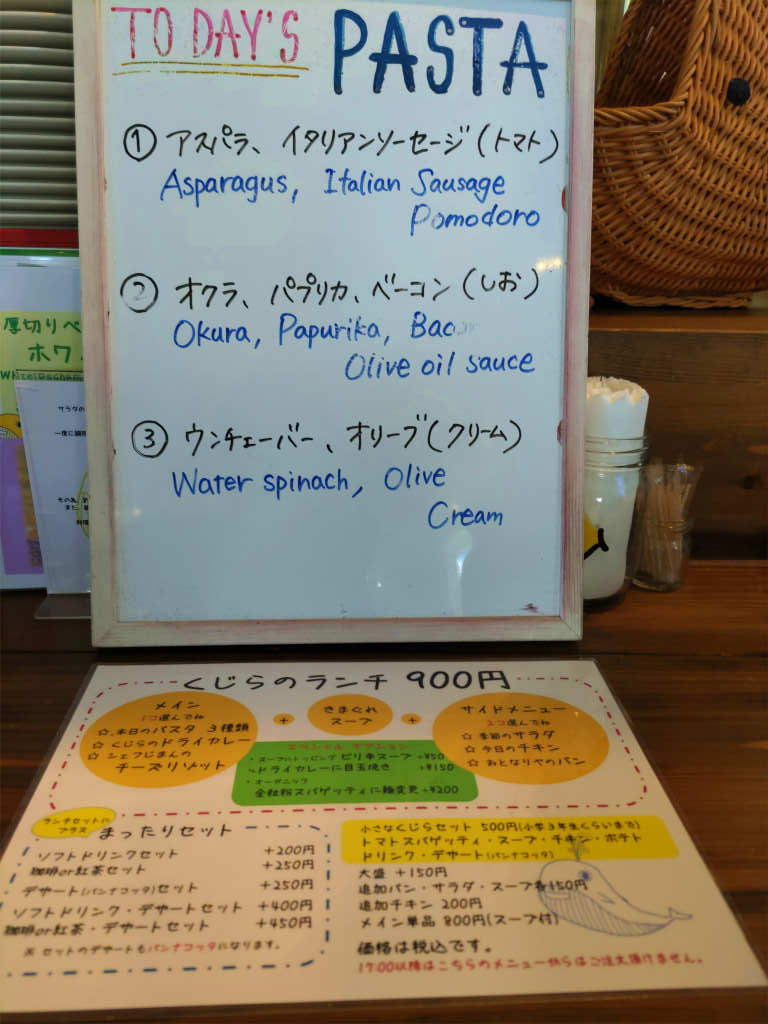 TODAY'S PASTA
① アスパラ、イタリアンソーセージ(トマト)
Asparagus, Italian Sausage
Pomodoro
② オクラ、パプリカ、ベーコン(しお)
Okura, Papurika, Bac
Olive oil sauce
③ ウンチェーバー、オリーブ(クリーム)
Water spinach, Olive
Cream
厚切りベ
ホワ
サラダの
くじらのランチ 900円
メイン
1コ選んでね
☆ 本日のパスタ 3種類
☆ くじらのドライカレー
☆ シェフじまんの
チーズリゾット
+
きまぐれ
スープ
+
サイドメニュー
2コ選んでね
☆ 季節のサラダ
☆ 今日のチキン
☆ おとなりやのパン
スペシャル オプション
・スープにトッピング ピリ辛スープ +¥50
・ドライカレーに目玉焼き +¥150
・オーガニック
全粒粉スパゲッティに麺変更 +¥200
ランチセットに
プラス
まったりセット
ソフトドリンクセット +200円
珈琲or紅茶セット +250円
デザート(パンナコッタ)セット +250円
ソフトドリンク・デザートセット +400円
珈琲or紅茶・デザートセット +450円
※ セットのデザートもパンナコッタになります。
小さなくじらセット 500円(小学3年生くらいまで)
トマトスパゲッティ・スープ・チキン・ポテト
ドリンク・デザート(パンナコッタ)
大盛 +150円
追加パン・サラダ・スープ各150円
追加チキン 200円
メイン単品 800円(スープ付)
価格は税込です。
17:00以降はこちらのメニューからはご注文頂けません。